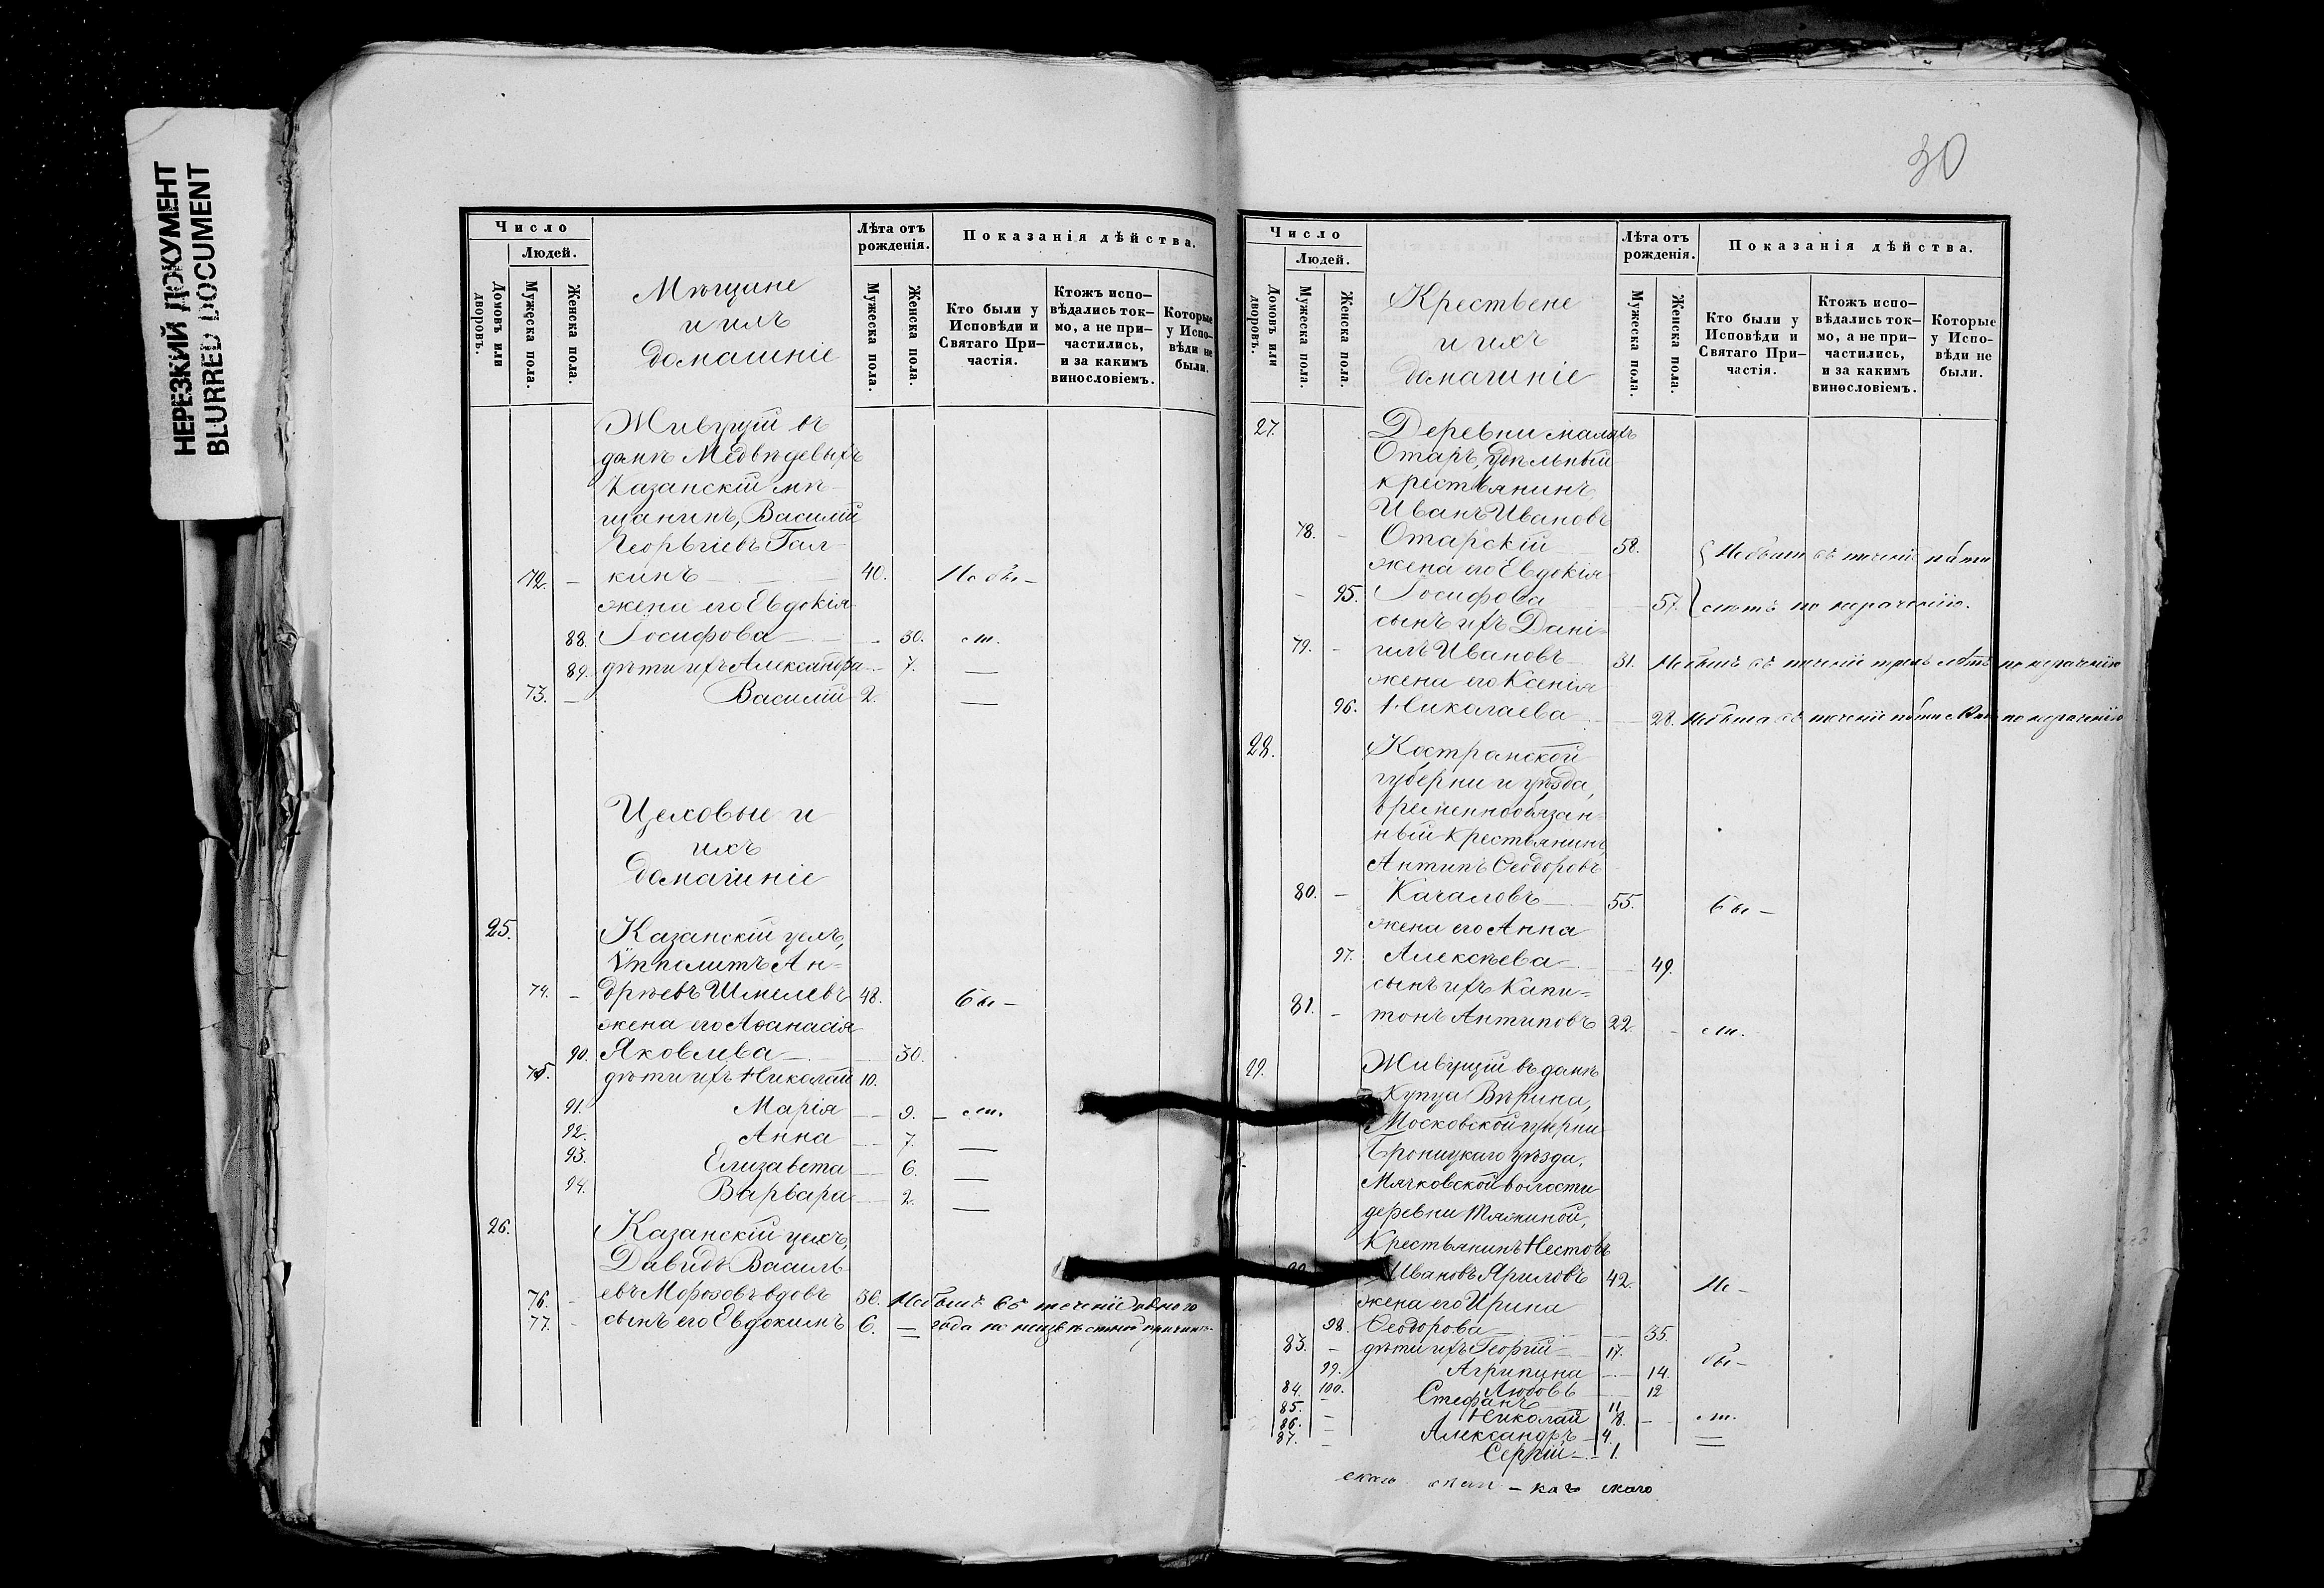 НЕРЕЗКИЙ ДОКУМЕНТ
BLURRED DOCUMENT
Число
Людей.
Домовъ или дворовъ.
Мужеска пола.
Женска пола.
Мѣщане
и ихъ
домашніе
Лѣта отъ рожденія.
Мужеска пола.
Женска пола.
Показанія дѣйства.
Кто были у Исповѣди и Святаго При-частія.
Ктожъ испо-вѣдались ток-мо, а не при-частились, и за какимъ винословіемъ.
Которые у Испо-вѣди не были.
Живущій въ
домѣ Медвѣдевыхъ
Казанскій мѣ-
щанинъ, Василій
Георгіевъ Гал-
72. – кинъ 40. Не бы –
жена его Евдокія
88. Іосифова – 30. ст.
89. дѣти ихъ Александра – 7. —
73. – Василій 2. —
Цеховые и
ихъ
домашніе
25. Казанскій цехъ,
Ѵпполитъ Ан-
74. – дреевъ Шмелевъ 48. бы –
жена его Аѳанасія
90. Яковлева – 30.
75. дѣти ихъ Николай 10.
91. Марія – 9. – ст.
92. Анна – 7. —
93. Елизавета – 6. —
94. Варвара – 2. —
26. Казанскій цехъ,
Давидъ Василь-
76. – евъ Морозовъ вдовъ 36. Не былъ въ теченіе
77. – сынъ его Евдокимъ 6. — года по неизвѣстной причинѣ.
30
Число
Людей.
Домовъ или дворовъ.
Мужеска пола.
Женска пола.
Крестьене
и ихъ
домашніе
Лѣта отъ рожденія.
Мужеска пола.
Женска пола.
Показанія дѣйства.
Кто были у Исповѣди и Святаго При-частія.
Ктожъ испо-вѣдались ток-мо, а не при-частились, и за какимъ винословіемъ.
Которые у Испо-вѣди не были.
27. Деревни малыхъ
Отаръ, удѣльный
крестьянинъ,
Иванъ Ивановъ
78. – Отарскій 58. Не были въ теченіе пяти
жена его Евдокія
– 95. Іосифова 57. лѣтъ по нераченію.
сынъ ихъ Дані-
79. – илъ Ивановъ 31. Не былъ въ теченіе трехъ лѣтъ по нераченію
жена его Ксенія
96. Николаева 28. Не была въ теченіе пяти лѣтъ по нераченію
28. Костранской
губерни и уѣзда,
временнообязан-
ный крестьянинъ,
Антипъ Ѳеодоровъ
80. – Качаловъ 55. бы –
жена его Анна
97. Алексѣева 49.
сынъ ихъ Капи-
81. – тонъ Антиповъ 22. – ст.
29. Живущій въ домѣ
Купца Вѣрина,
Московской губерни
Броницкаго уѣзда,
Мячковской волости
деревни
Крестьянинъ Несторъ
Ивановъ 42. Не –
жена его Ирина
98. Ѳеодорова 35.
83. – дѣти ихъ Георгій 17. бы –
99. Агрипина 14.
100. Любовь 12
84. – Стефанъ 11
85. – Николай 8. – ст.
86. – Александръ – 4. —
87. – Сергій – 1. —